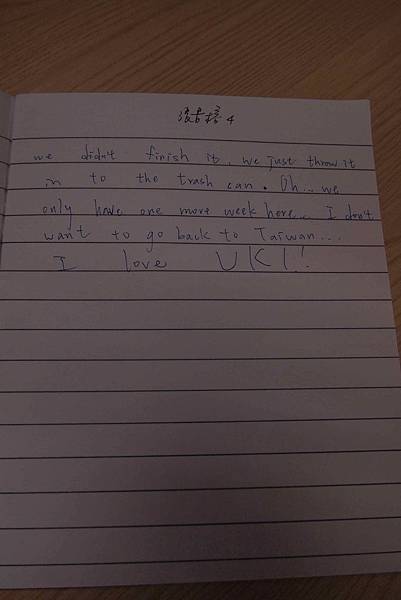 4
we didn't finish it. we just throw it
in to the trash can. Oh... we
only have one more week here... I don't
want to go back to Taiwan....
I love UK!!